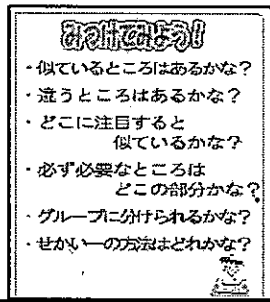 みつけてみよう！
・似ているところはあるかな？
・違うところはあるかな？
・どこに注目すると
似ているかな？
・必ず必要なところは
どこの部分かな？
・グループに分けられるかな？
・せかい一の方法はどれかな？